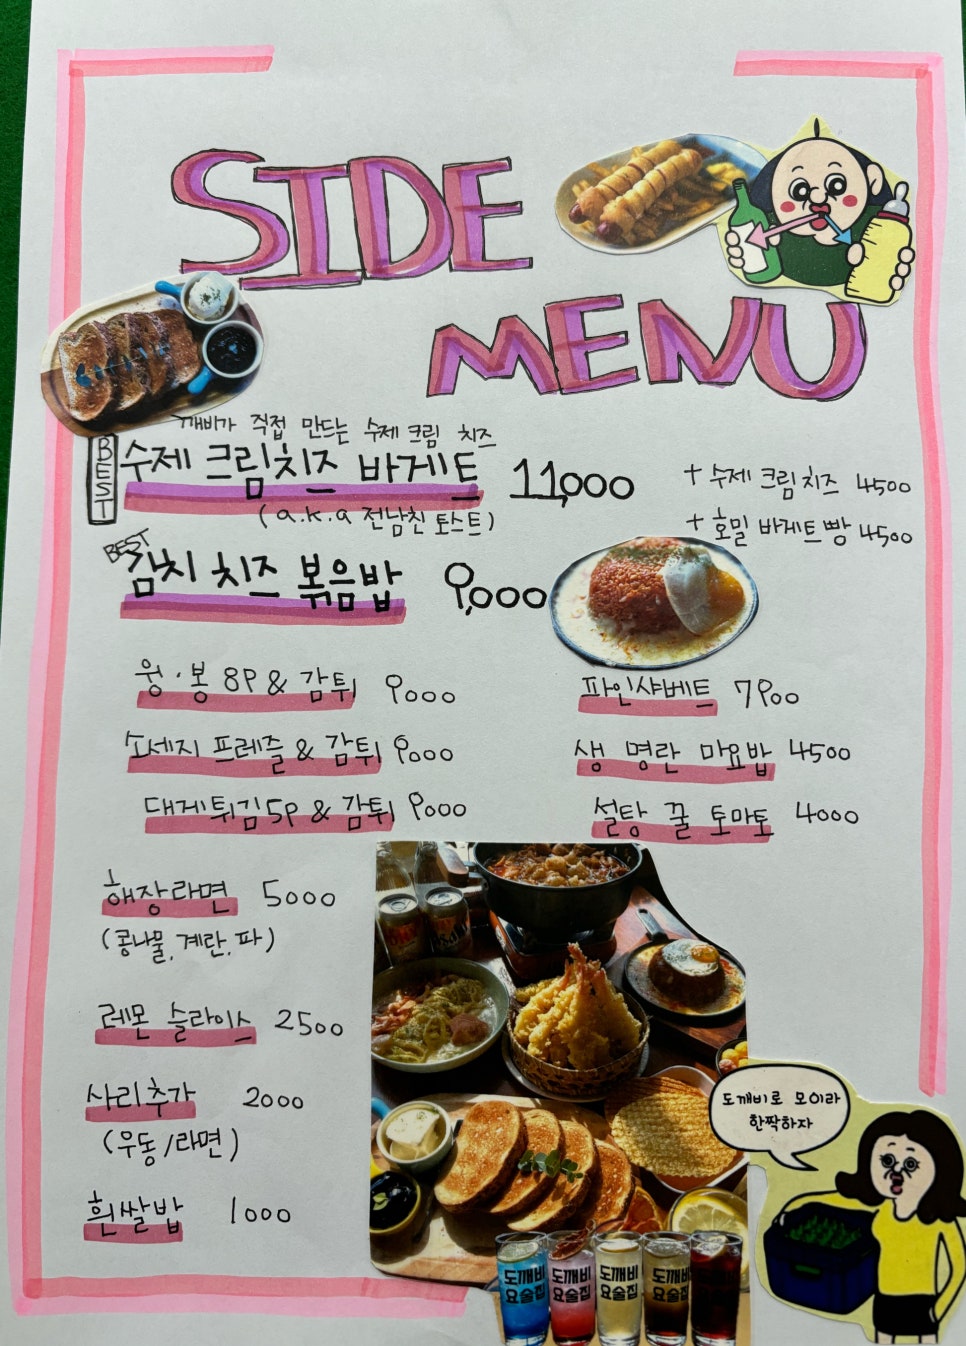 SIDE
MENU
깨비가 직접 만드는 수제 크림 치즈
BEST 수제 크림치즈 바게트 11,000
(a.k.a 전남친 토스트)
+ 수제 크림치즈 4500
+ 호밀 바게트빵 4500
BEST 김치 치즈 볶음밥 9,000
윙·봉 8P & 감튀 9000
소세지 프레즐 & 감튀 9000
대게튀김 5P & 감튀 9000
파인샤베트 7900
생 명란 마요밥 4500
설탕 꿀 토마토 4000
해장라면 5000
(콩나물, 계란, 파)
레몬 슬라이스 2500
사리추가 2000
(우동/라면)
흰쌀밥 1000
도깨비로 모이라
한짝하자
도깨비
요술집
도깨비
요술집
도깨비
요술집
도깨비
요술집